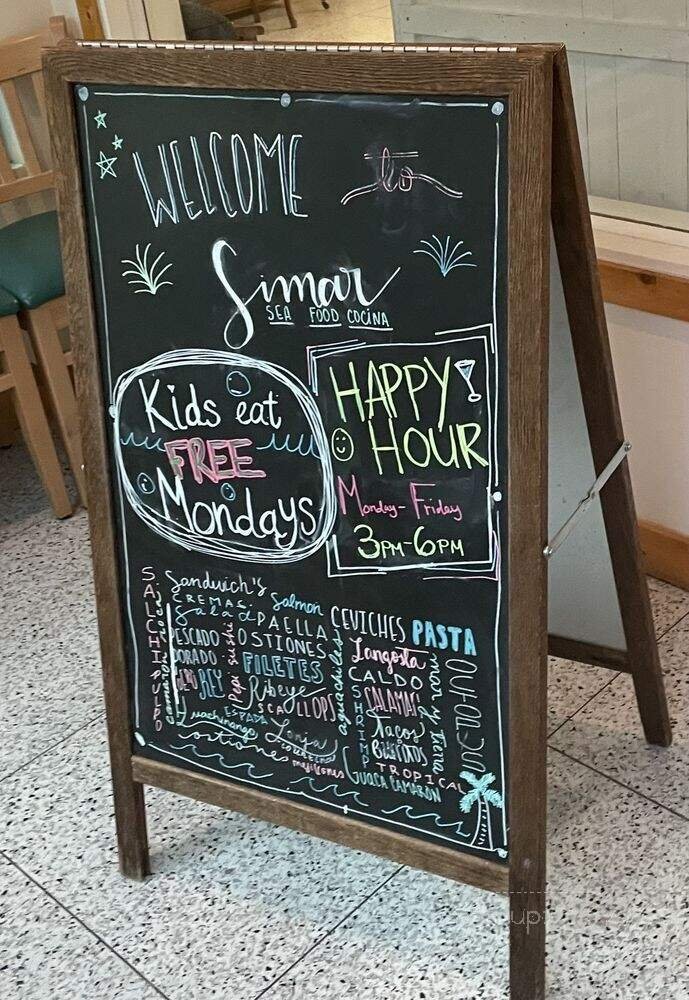 WELCOME to
Simar
SEA FOOD COCINA
Kids eat
FREE
Mondays
HAPPY
HOUR
Monday-Friday
3PM-6PM
SALCHIPULPO
Sandwich's
CREMAS
Salmon
Salad
PAELLA
CEVICHES
PASTA
PESCADO
OSTIONES
Langosta
DORADO
FILETES
CALDO
REY
Ribeye
CALAMAR
SCALLOPS
aguachiles
SHRIMP
Tacos
mar y tierra
huachinango
ESPADA
Lonja
BURRITOS
ostiones
mejillones
TROPICAL
GUACA CAMARON